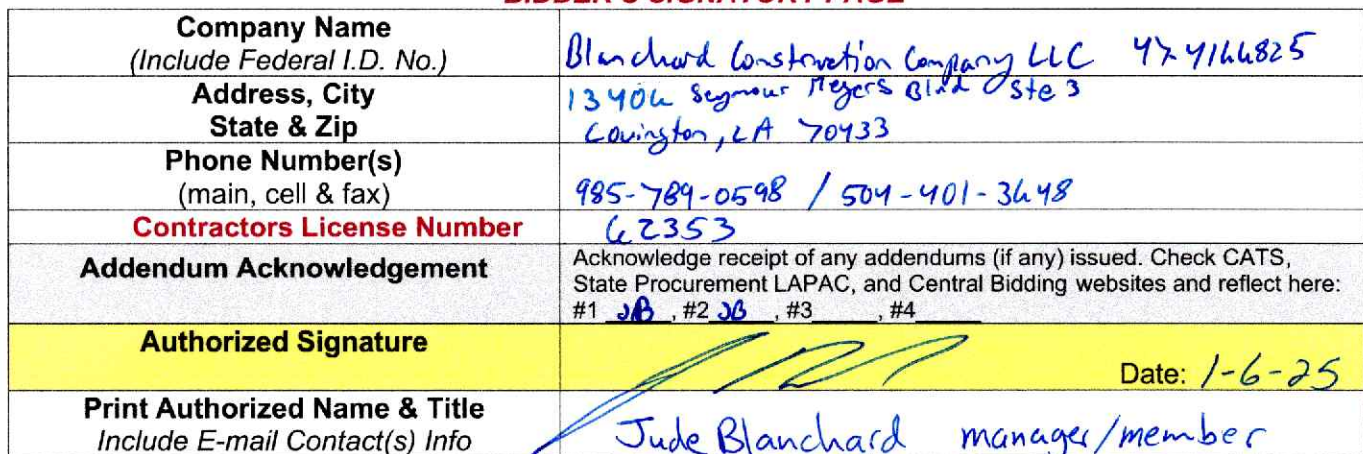 BIDDER'S SIGNATORY PAGE
Company Name
(Include Federal I.D. No.)
Blanchard Construction Company LLC 47-4166825
Address, City
State & Zip
13406 Seymour Meyers Blvd Ste 3
Covington, LA 70433
Phone Number(s)
(main, cell & fax)
985-789-0598 / 504-401-3648
Contractors License Number
62353
Addendum Acknowledgement
Acknowledge receipt of any addendums (if any) issued. Check CATS,
State Procurement LAPAC, and Central Bidding websites and reflect here:
#1 JB, #2 JB, #3_____, #4_____
Authorized Signature
Date: 1-6-25
Print Authorized Name & Title
Include E-mail Contact(s) Info
Jude Blanchard manager/member